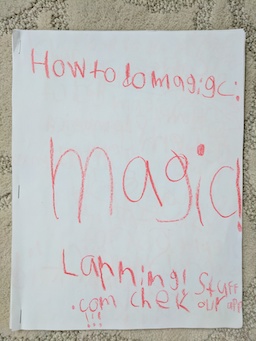 How to do magigc:
magic!
Lapning! Stuff
.com chek out app
!!!